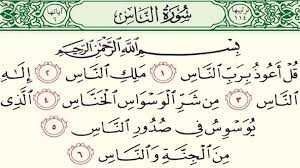 آياتها ٦ سُورَةُ النَّاسِ ترتيبها ١١٤
بِسْمِ اللَّهِ الرَّحْمَٰنِ الرَّحِيمِ
قُلْ أَعُوذُ بِرَبِّ النَّاسِ ١ مَلِكِ النَّاسِ ٢ إِلَٰهِ
النَّاسِ ٣ مِن شَرِّ الْوَسْوَاسِ الْخَنَّاسِ ٤ الَّذِي
يُوَسْوِسُ فِي صُدُورِ النَّاسِ ٥
مِنَ الْجِنَّةِ وَالنَّاسِ ٦